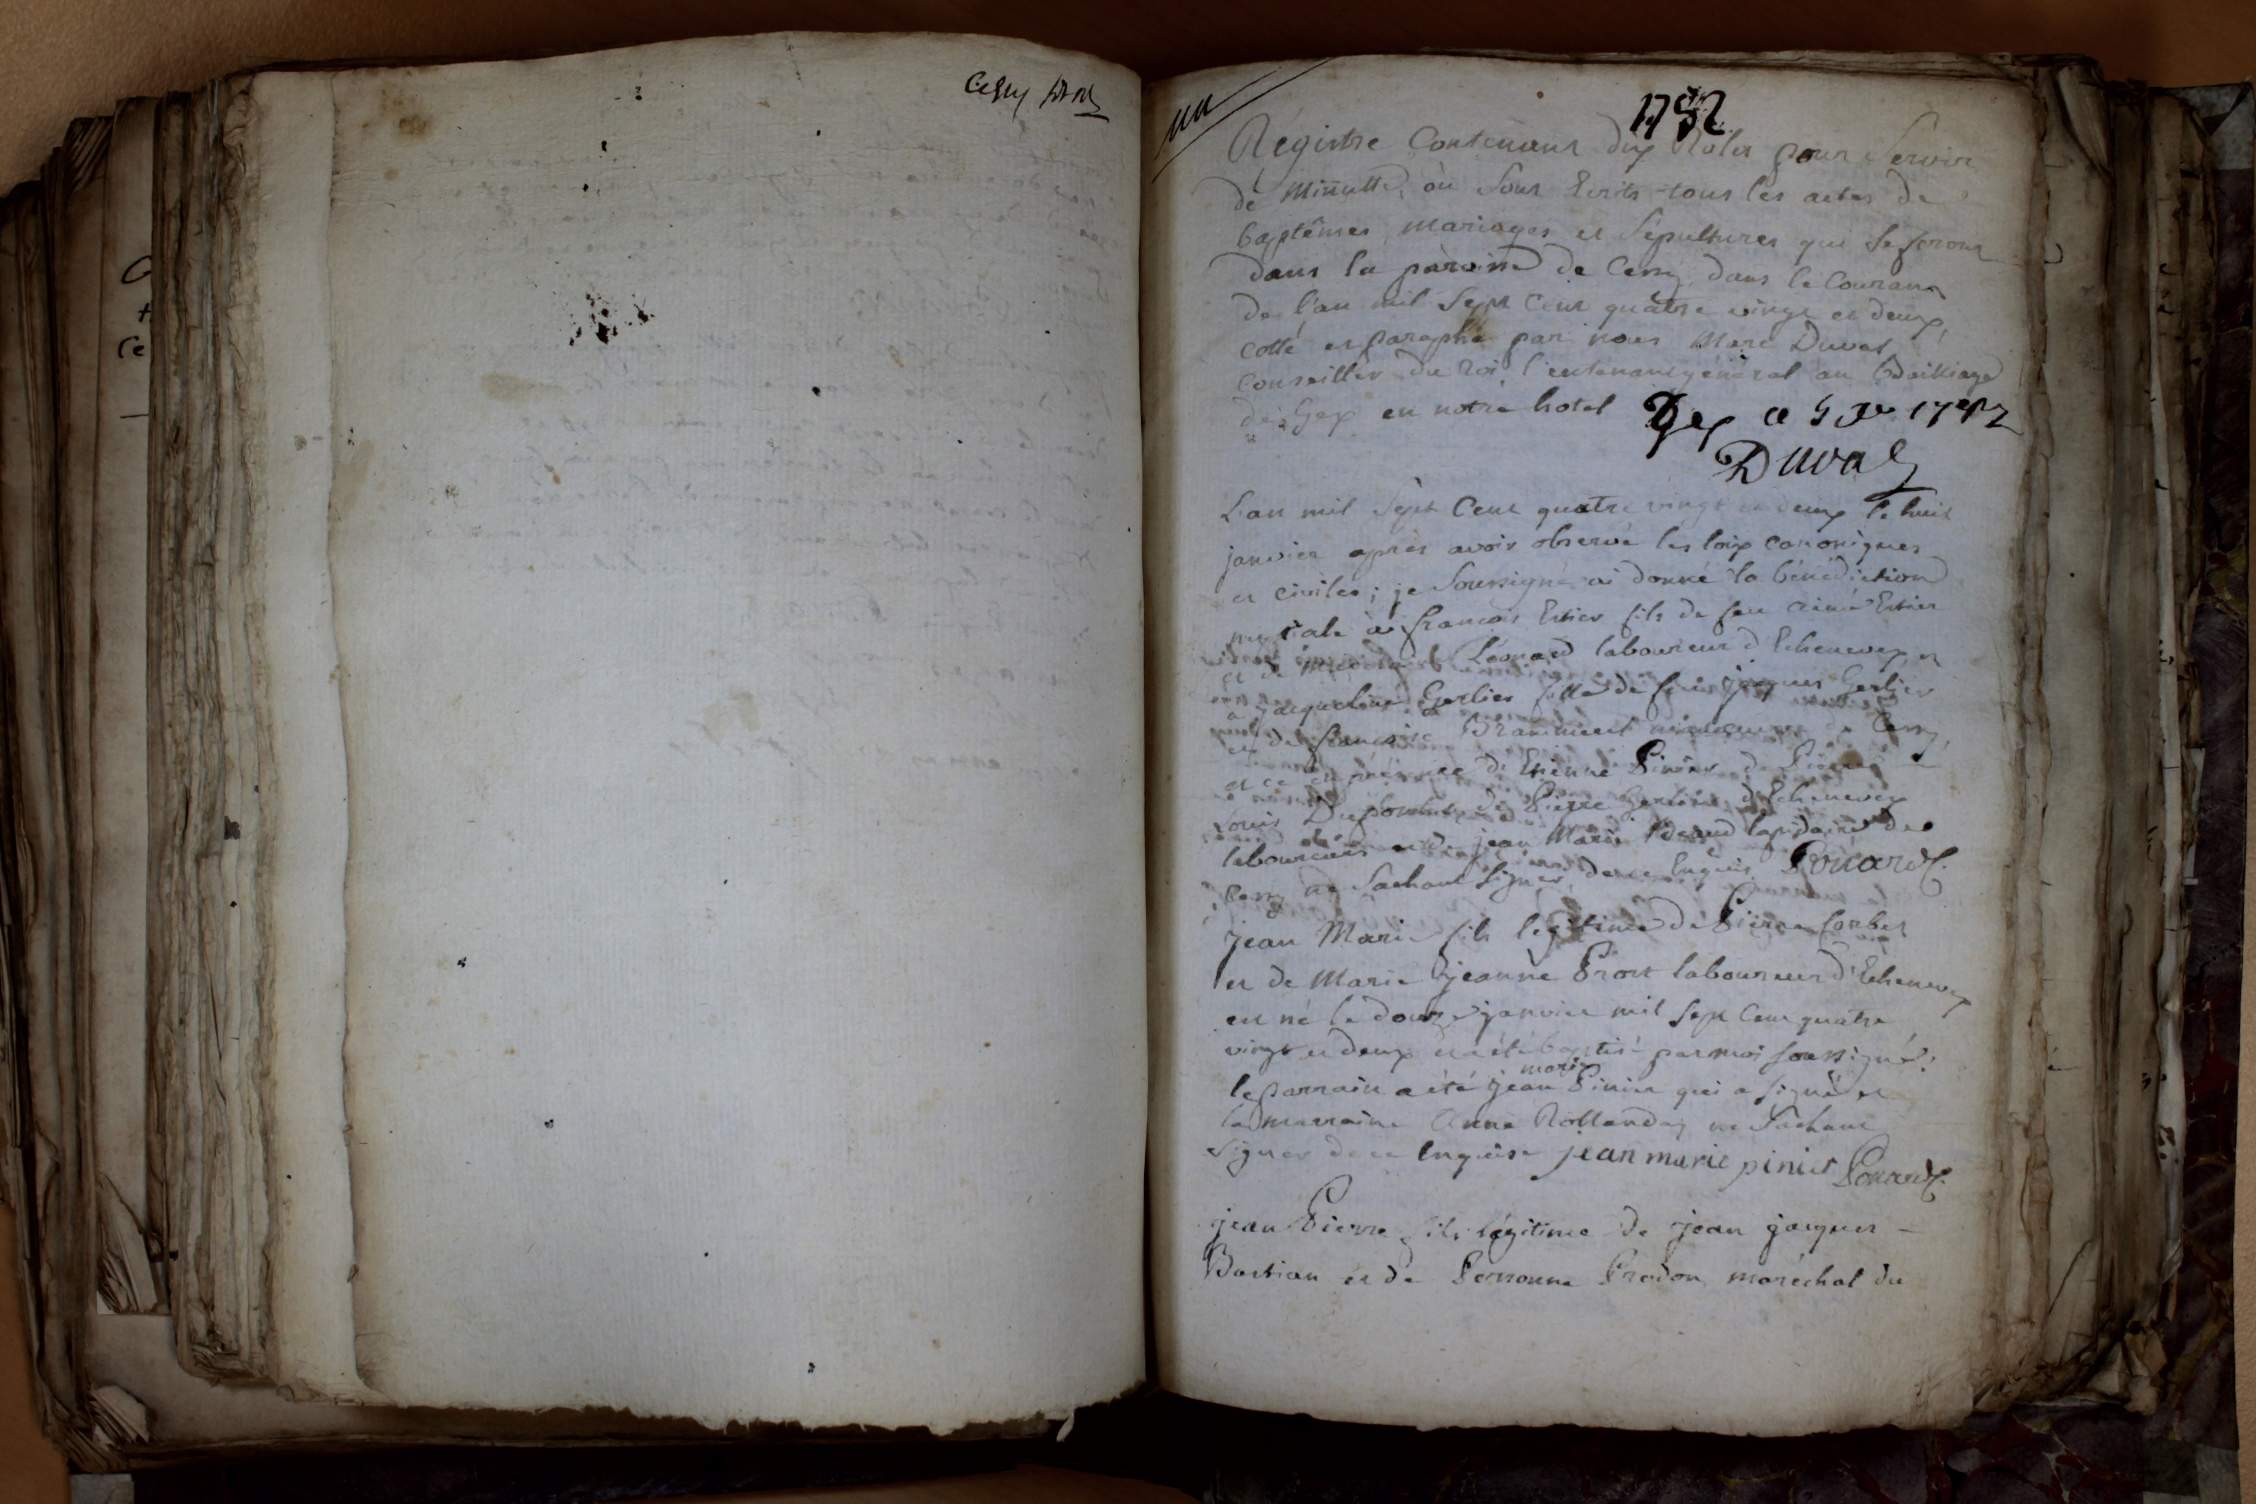 Cessy
un
1782
Régistre Contenant dix Roles pour Servir
de Minutte, où Sont Ecrits tous les actes de
baptêmes mariages et Sépultures qui Se feront
dans la paroisse de Cessy dans le Courant
de l'an mil Sept Cent quatre vingt et deux,
cotté et paraphé par nous Marc Duval
Conseiller du Roi, lieutenant général au Bailliage
de Gex en notre hotel Gex ce 5 Jer 1782
Duval
L'an mil Sept Cent quatre vingt et deux le huit
janvier après avoir observé les loix canoniques
et civiles ; je Soussigné ai donné la bénédiction
nuptiale à francois Estier fils de feu aimé Estier
et de Léonard laboureur d'Echenevex et
a jacqueline Gerlier fille de feu jacques Gerlier
et de francoise de Cessy,
et ce en présence de Etienne Pinier de
Louis Duponlus de Pierre Gerlier d'Echenevex
laboureurs et de jean Marie lapidaire de
Cessy ne Sachant Signer de ce Enquis Ponard C.
jean Marie fils legitime de Pierre Corbet
et de Marie jeanne Prost laboureur d'Echenevex
est né le douze janvier mil Sept Cent quatre
vingt et deux et a été baptisé par moi Soussigné:
marie
le parrain a été jean Pinier qui a signé et
la marraine Anne Rollanday ne Sachant
signer de ce Enquise jean marie pinier Ponard C.
jean Pierre fils légitime de jean jacques -
Bastian et de Perronne Prodon maréchal du